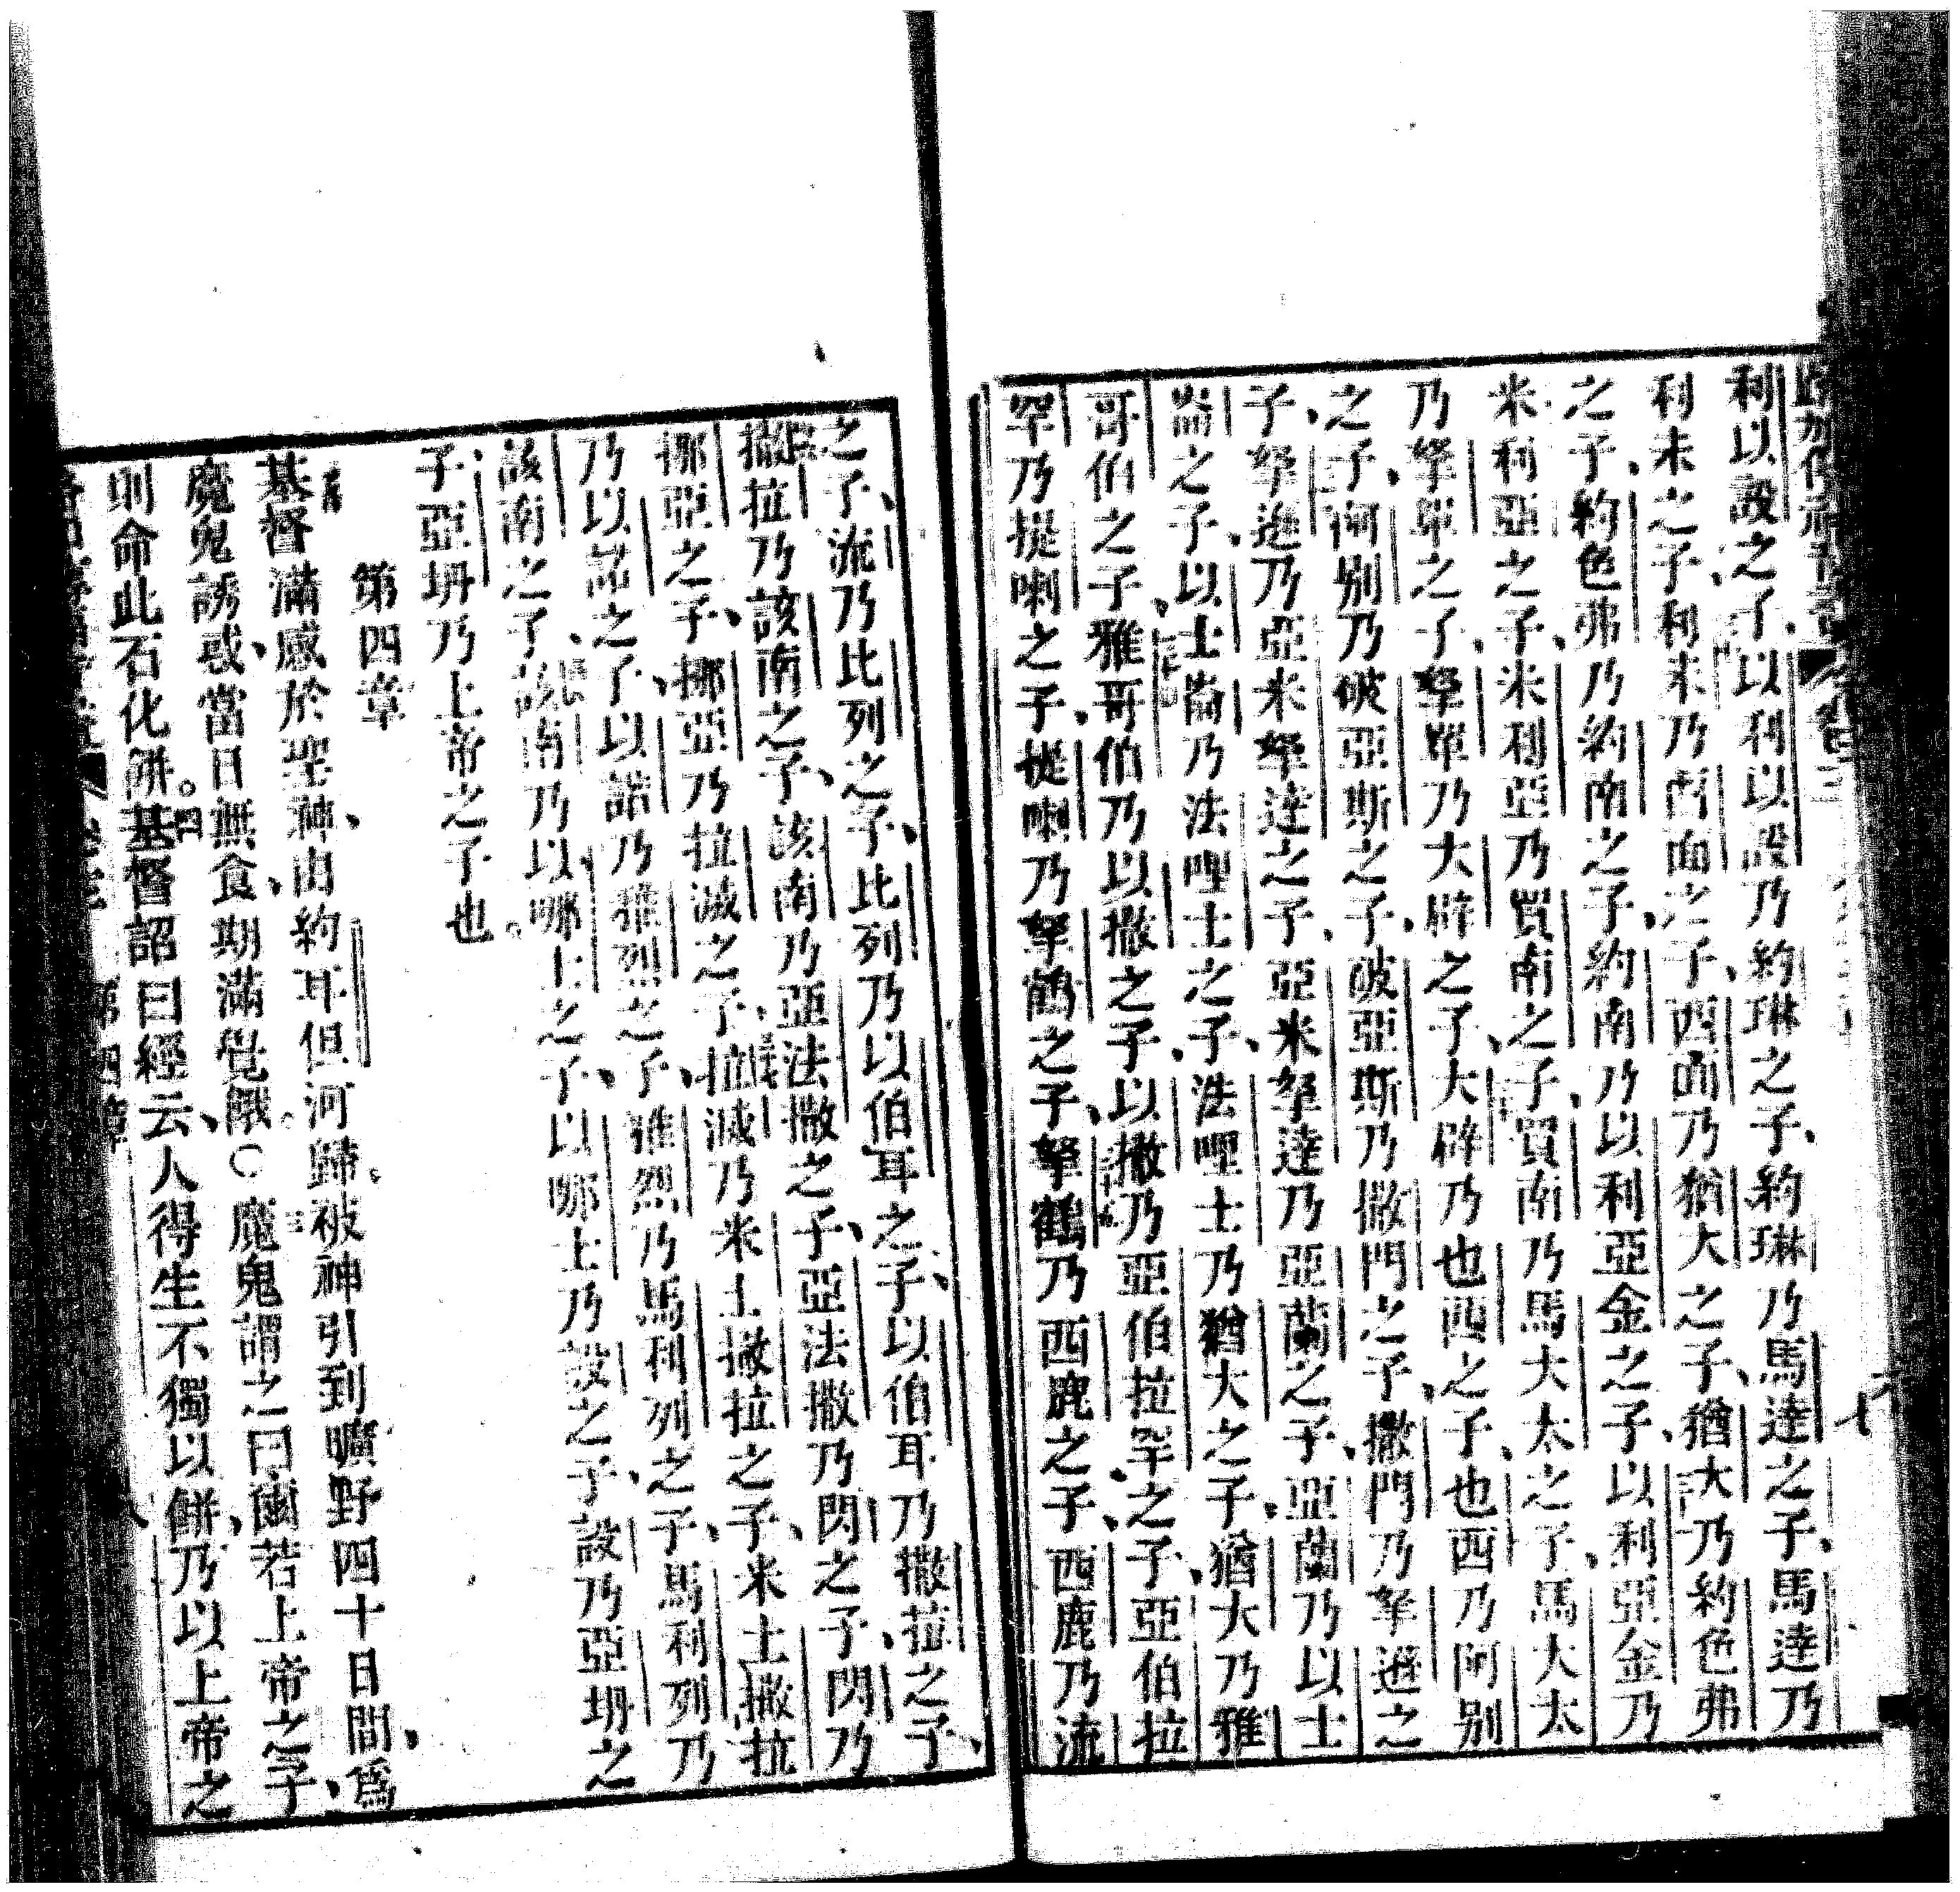 利以設之子以利以設乃約琳之子約琳乃馬達之子馬達乃
利未之子利未乃西面之子西面乃猶大之子猶大乃約色弗
之子約色弗乃約南之子約南乃以利亞金之子以利亞金乃
米利亞之子米利亞乃買南之子買南乃馬大太之子馬大太
乃拏單之子拏單乃大辟之子大辟乃也西之子也西乃阿别
之子阿别乃破亞斯之子破亞斯乃撒門之子撒門乃拏遜之
子拏遜乃亞米拏達之子亞米拏達乃亞蘭之子亞蘭乃以士
崙之子以士崙乃法哩士之子法哩士乃猶大之子猶大乃雅
哥伯之子雅哥伯乃以撒之子以撒乃亞伯拉罕之子亞伯拉
罕乃提喇之子提喇乃拏鶴之子拏鶴乃西鹿之子西鹿乃流
之子流乃比列之子比列乃以伯耳之子以伯耳乃撒拉之子
撒拉乃該南之子該南乃亞法撒之子亞法撒乃閃之子閃乃
挪亞之子挪亞乃拉滅之子拉滅乃米士撒拉之子米士撒拉
乃以諾之子以諾乃雅烈之子雅烈乃馬利列之子馬利列乃
該南之子該南乃以哪士之子以哪士乃設之子設乃亞坍之
子亞坍乃上帝之子也
第四章
基督滿感於聖神由約耳但河歸被神引到曠野四十日間爲
魔鬼誘惑當日無食期滿覺餓○魔鬼謂之曰爾若上帝之子
則命此石化餅基督詔曰經云人得生不獨以餅乃以上帝之
第四章